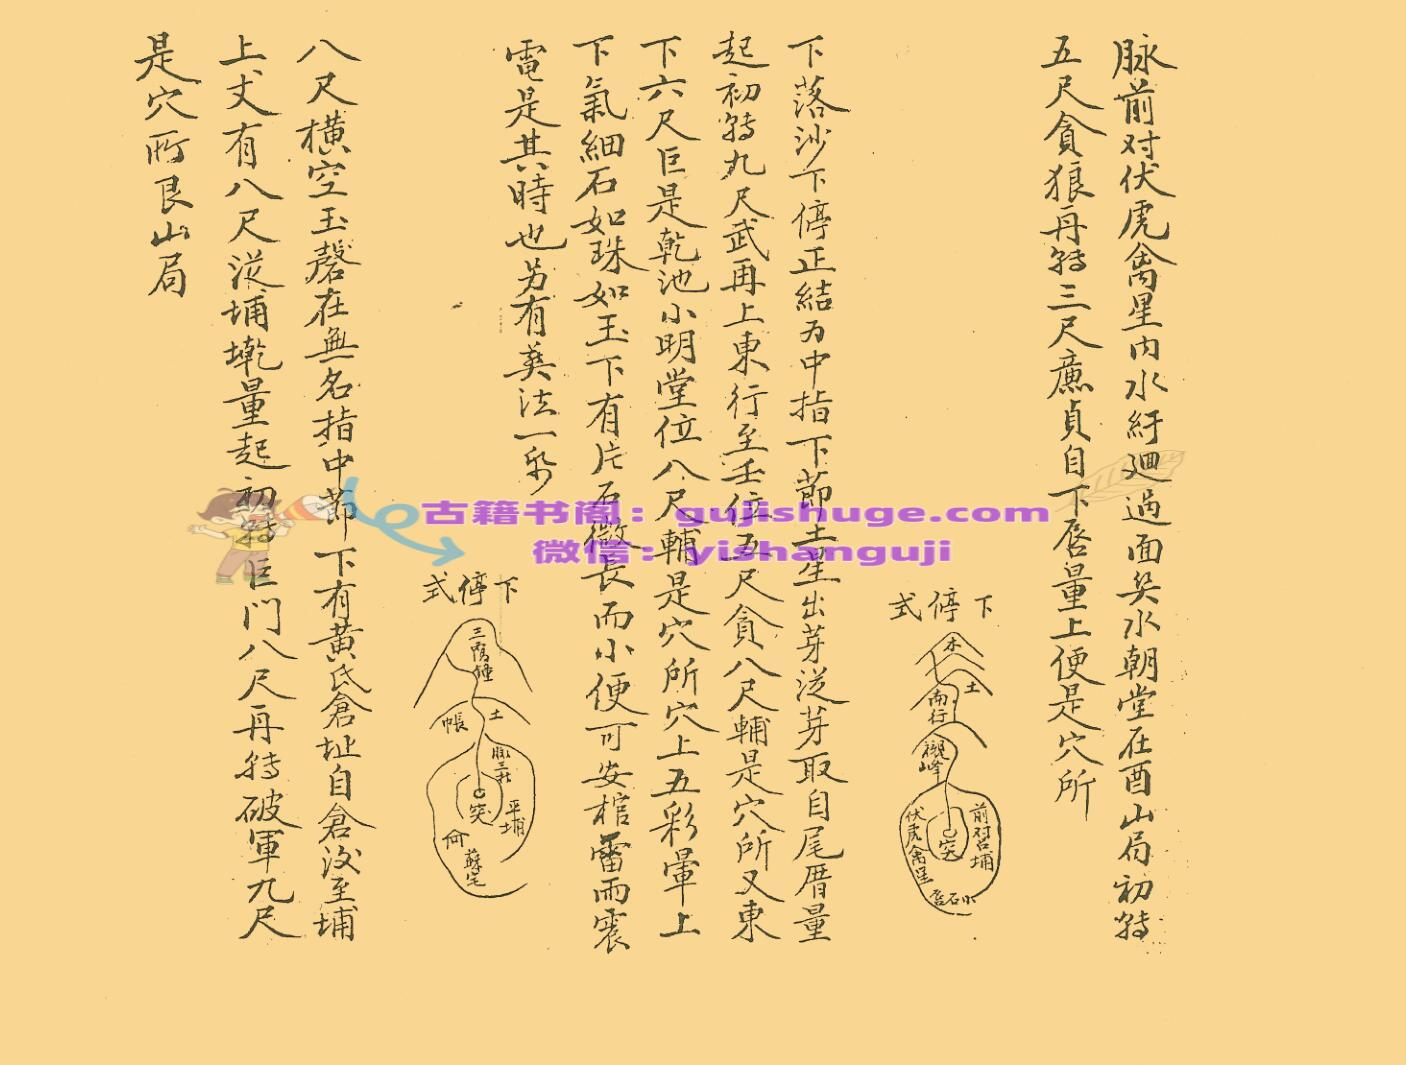 脉前对伏虎禽星内水紆廻過面癸水朝堂在酉山局初转
五尺貪狼再转三尺廉貞自下唇量上便是穴所
下停式
木
土
南行
襯峰
突
伏虎禽星
小石
下落沙下停正結为中指下節土星出芽従芽取自尾厝量
起初转九尺武再上東行至壬位五尺貪八尺輔是穴所又東
下六尺巨是乾池小明堂位八尺輔是穴所穴上五彩暈上
下氣細石如珠如玉下有片石微長而小便可安棺雷雨震
電是其時也另有葬法一
下停式
土
帳
平埔
突
蘇宅
八尺横空玉磬在無名指中節下有黄氏倉址自倉後至埔
上丈有八尺従埔墘量起初转巨门八尺再转破軍九尺
是穴所艮山局
古籍书阁：gujishuge.com
微信：yishanguji